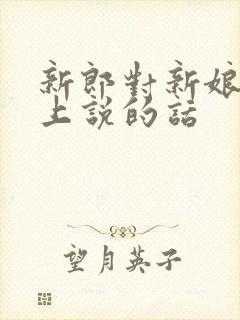 新郎對新娘
上說的話
望月英子